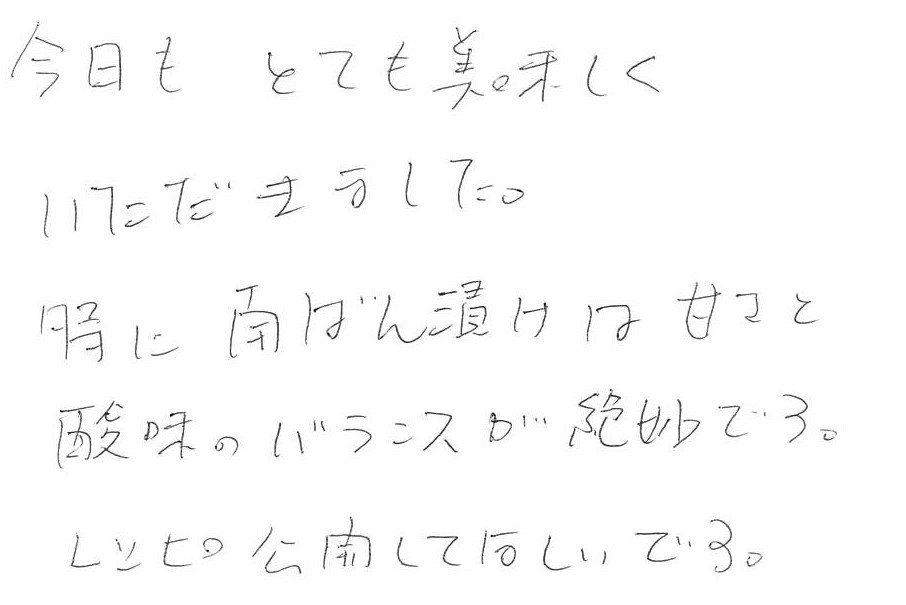 今日も とても美味しく
いただきました。
特に 南ばん漬けは 甘さと
酸味のバランスが絶妙です。
レシピ公開してほしいです。